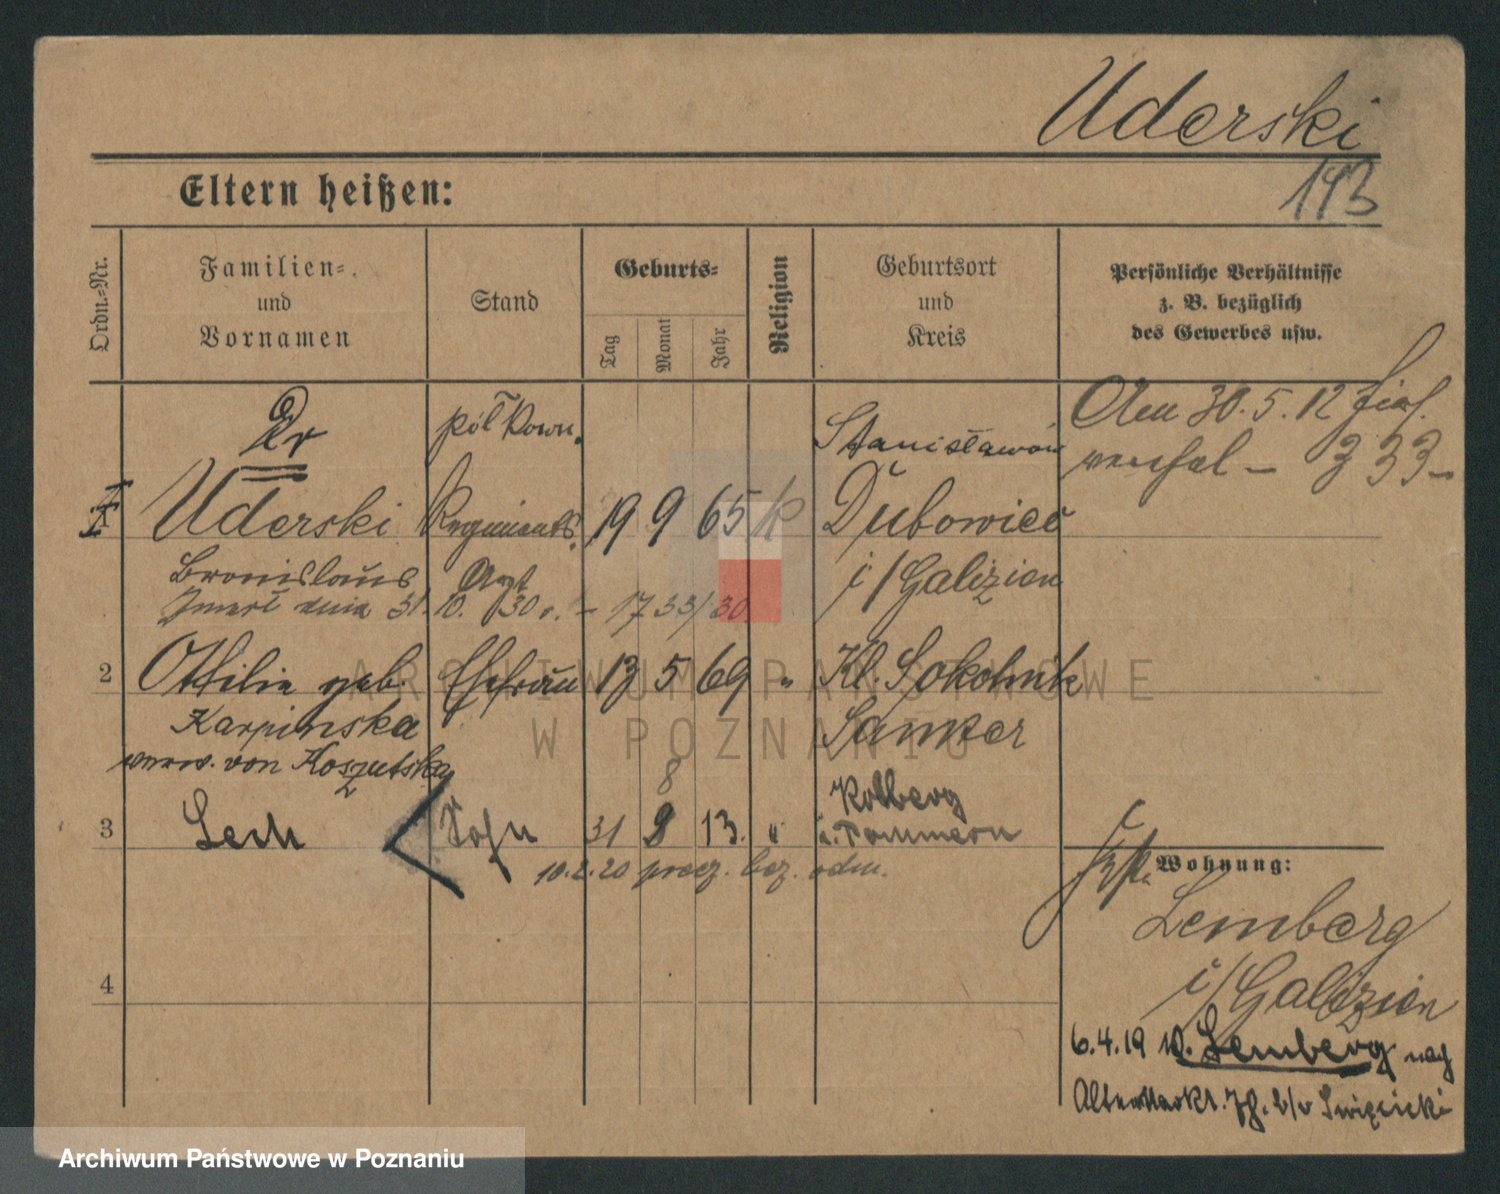 Uderski
143
Eltern heißen:
Ordn.=Nr.
Familien=
und
Vornamen
Stand
Geburts=
Tag
Monat
Jahr
Religion
Geburtsort
und
Kreis
Persönliche Verhältnisse
z. B. bezüglich
des Gewerbes usw.
Dr pólkown. Stanisławów
Den 30.5.12
333
1 Uderski Regiments 19 9 65 K Dubowiec
Bronislaus Arzt i/Galizien
Zmarł dnia 31. 10. 30 r. – 1733/30
2 Ottilie geb. Ehefrau 13 5 69 " Kl. Sokolnik
Karpinska Samter
verw. von Koszutska
8
3 Lech Sohn 31 8 13. " Kolberg
i. Pommern
10.2.20 bez. odm.
Wohnung:
Lemberg
i/Galizien
4
6.4.19 v. Lemberg nach
Altermarkt. b/v Swięcicki
ARCHIWUM PAŃSTWOWE
W POZNANIU
Archiwum Państwowe w Poznaniu